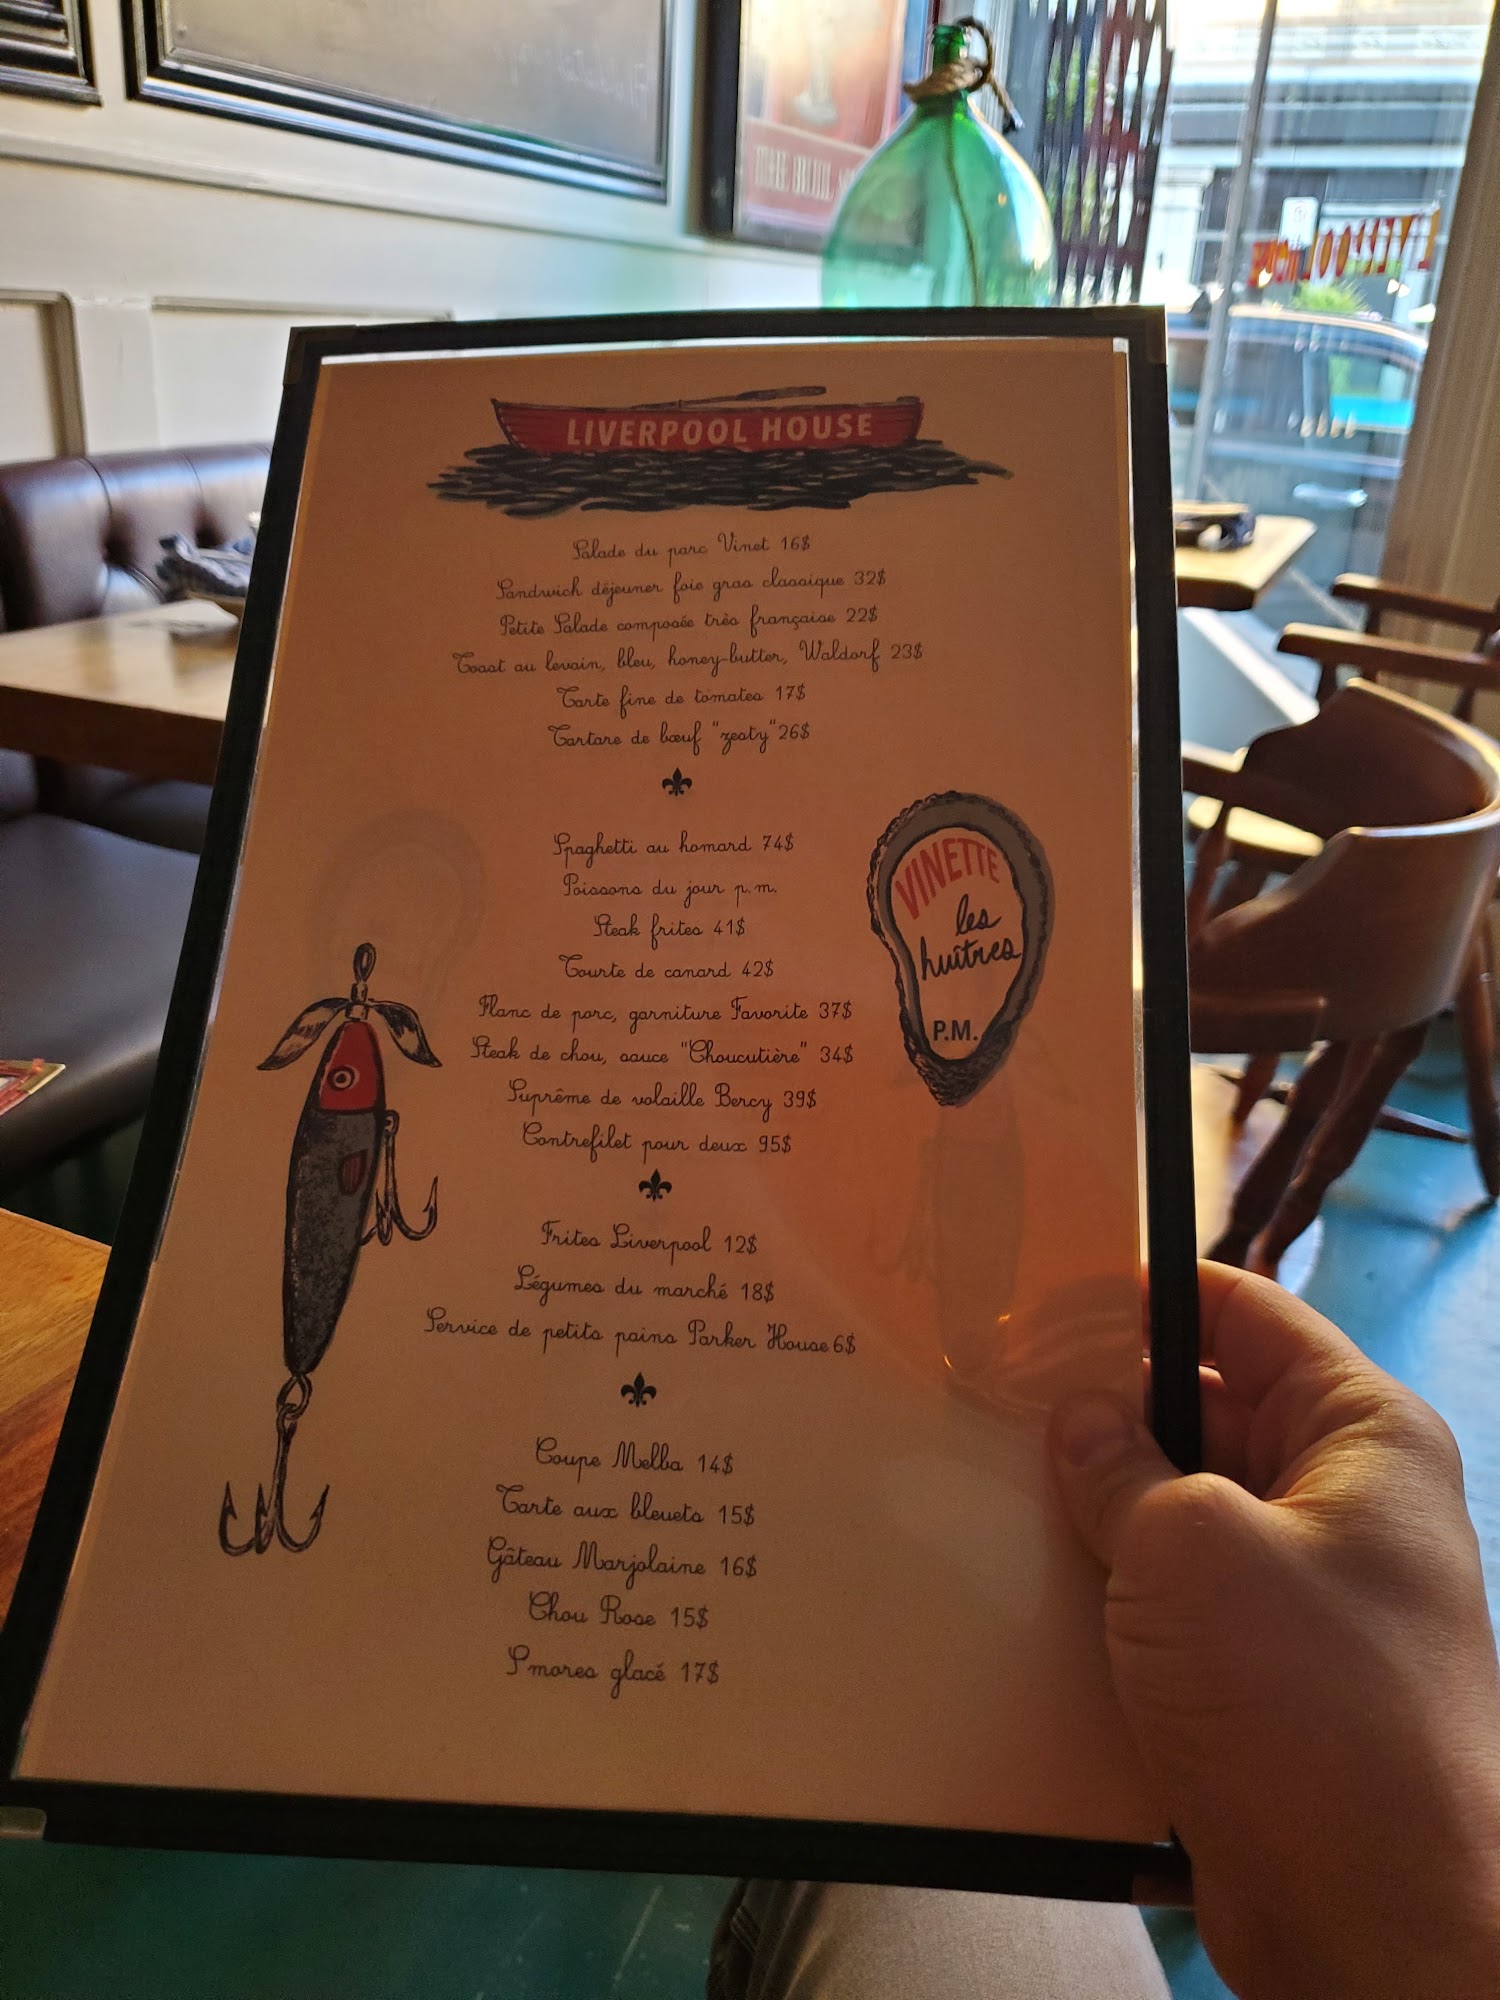 LIVERPOOL HOUSE
Salade du parc Vinet 16$
Sandwich déjeuner foie gras classique 32$
Petite Salade composée très française 22$
Toast au levain, bleu, honey-butter, Waldorf 23$
Tarte fine de tomates 17$
Tartare de bœuf "zesty" 26$
Spaghetti au homard 74$
Poissons du jour p.m.
Steak frites 41$
Tourte de canard 42$
Flanc de porc, garniture Favorite 37$
Steak de chou, sauce "Choucutière" 34$
Suprême de volaille Bercy 39$
Contrefilet pour deux 95$
VINETTE
les
huîtres
P.M.
Frites Liverpool 12$
Légumes du marché 18$
Service de petits pains Parker House 6$
Coupe Melba 14$
Tarte aux bleuets 15$
Gâteau Marjolaine 16$
Chou Rose 15$
S'mores glacé 17$
LIVERPOOL HOUSE